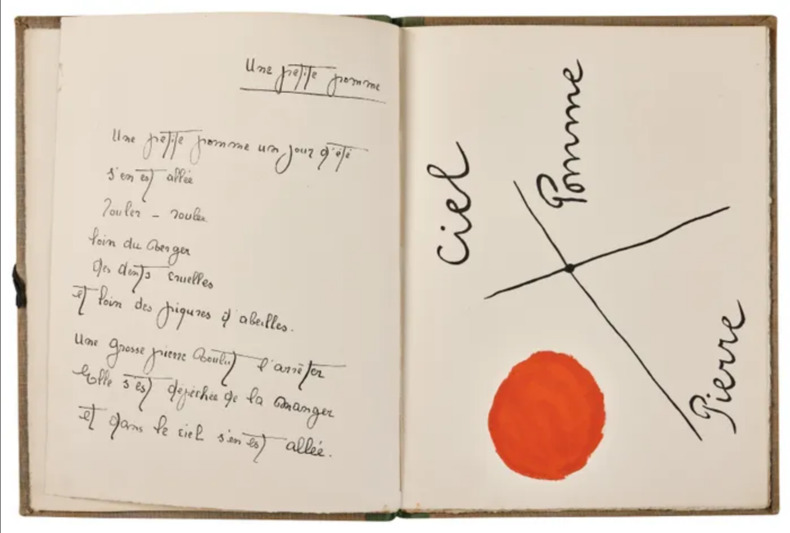 Une petite pomme
Une petite pomme un jour d'été
s'en est allée
Rouler - rouler
loin du verger
des dents cruelles
et loin des piqures d'abeilles.
Une grosse pierre voulut l'arrêter
Elle s'est dépéchée de la manger
et dans le ciel s'en est allée.
Ciel
Pomme
Pierre